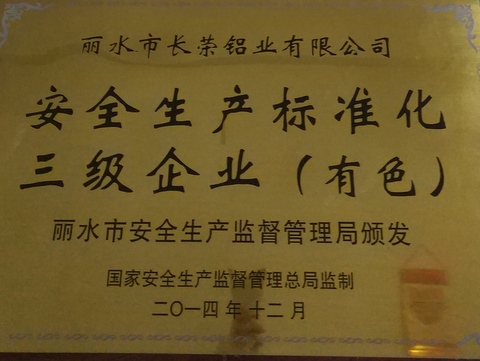 丽水市长荣铝业有限公司
安全生产标准化
三级企业（有色）
丽水市安全生产监督管理局颁发
国家安全生产监督管理总局监制
二〇一四年十二月